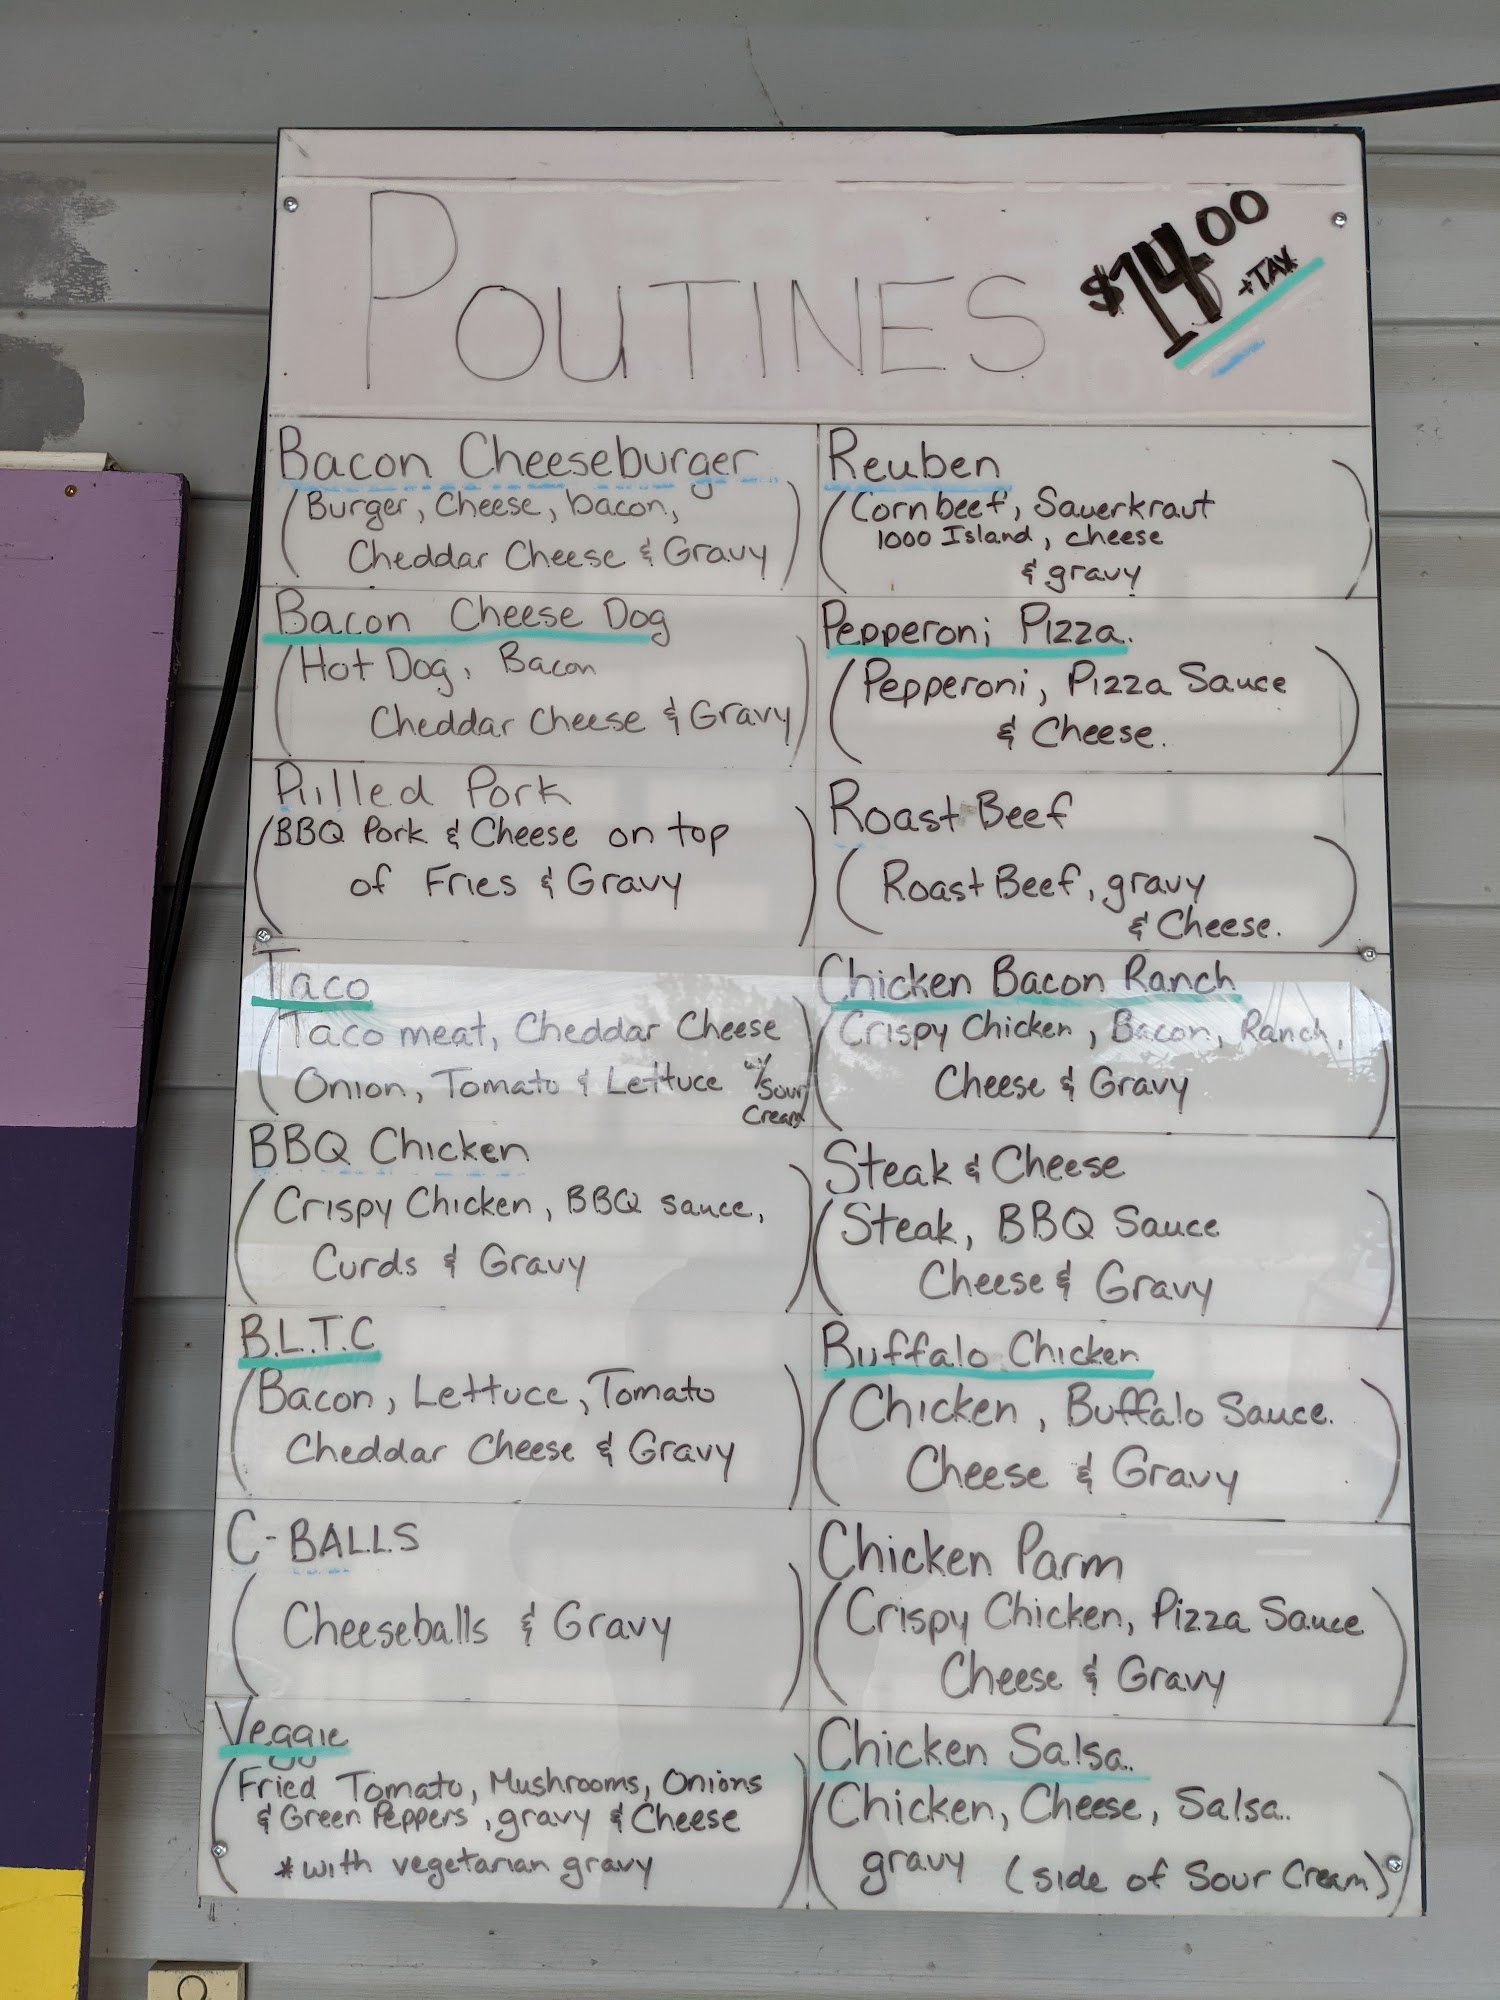 POUTINES
$14.00
+TAX
Bacon Cheeseburger
(Burger, Cheese, bacon,
Cheddar Cheese & Gravy)
Bacon Cheese Dog
(Hot Dog, Bacon
Cheddar Cheese & Gravy)
Pulled Pork
(BBQ Pork & Cheese on top
of Fries & Gravy)
Taco
(Taco meat, Cheddar Cheese
Onion, Tomato & Lettuce w/ Sour
Cream)
BBQ Chicken
(Crispy Chicken, BBQ sauce,
Curds & Gravy)
B.L.T.C
(Bacon, Lettuce, Tomato
Cheddar Cheese & Gravy)
C-BALLS
(Cheeseballs & Gravy)
Veggie
(Fried Tomato, Mushrooms, Onions
& Green Peppers, gravy & Cheese
*with vegetarian gravy)
Reuben
(Corn beef, Sauerkraut
1000 Island, cheese
& gravy)
Pepperoni Pizza.
(Pepperoni, Pizza Sauce
& Cheese.)
Roast Beef
(Roast Beef, gravy
& Cheese.)
Chicken Bacon Ranch
(Crispy Chicken, Bacon, Ranch,
Cheese & Gravy)
Steak & Cheese
(Steak, BBQ Sauce
Cheese & Gravy)
Buffalo Chicken
(Chicken, Buffalo Sauce.
Cheese & Gravy)
Chicken Parm
(Crispy Chicken, Pizza Sauce
Cheese & Gravy)
Chicken Salsa.
(Chicken, Cheese, Salsa..
gravy (side of Sour Cream))